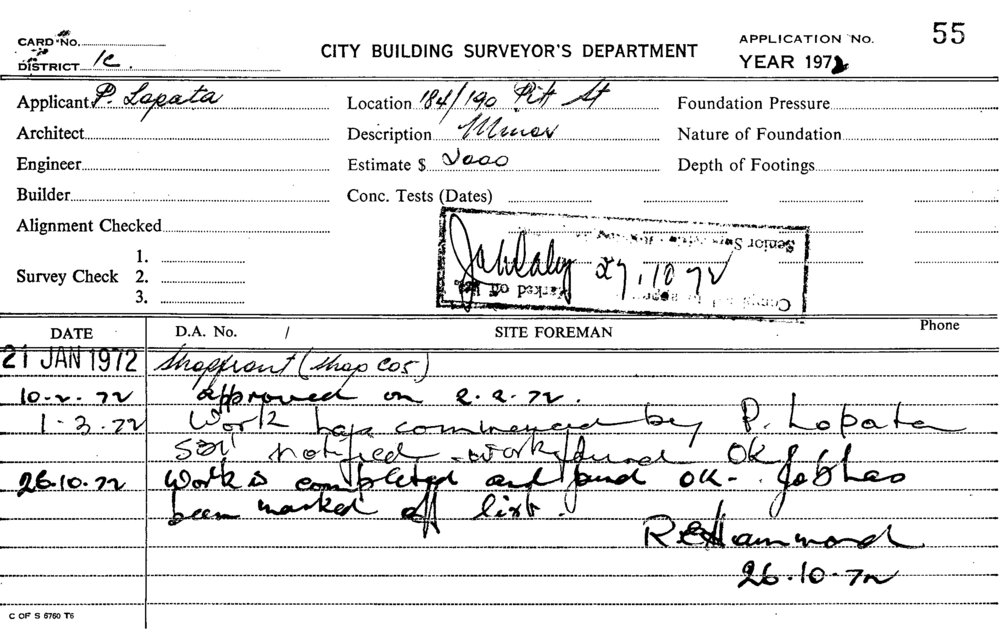 CARD No.
DISTRICT 1C.
CITY BUILDING SURVEYOR'S DEPARTMENT
APPLICATION No. 55
YEAR 1972
Applicant P. Lopata
Location 184/190 Pitt St
Foundation Pressure
Architect
Description Minor
Nature of Foundation
Engineer
Estimate $ 2000
Depth of Footings
Builder
Conc. Tests (Dates)
Alignment Checked
Senior
27.10.72
Marked off
Survey Check 1.
2.
3.
DATE
D.A. No. /
SITE FOREMAN
Phone
21 JAN 1972 Shopfront (shop C05)
10-2-72 approved on 2.2.72.
1-3-72 Work has commenced by P. Lopata
notified work found OK
26.10.72 Work is completed and found OK- Job has
been marked off list.
R E Hammond
26.10.72
C OF S 6760 T6